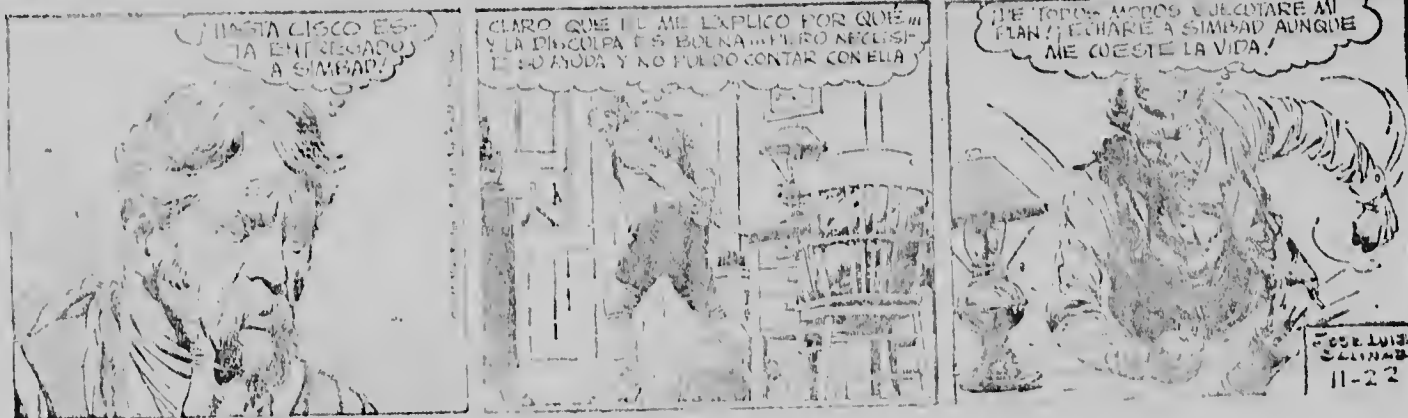 ¡HASTA CISCO ES-
TA ENTREGADO
A SIMBAD!
CLARO QUE EL ME EXPLICO POR QUÉ...
Y LA DISCULPA ES BUENA... PERO NECESI-
TO SU AYUDA Y NO PUEDO CONTAR CON ELLA
¡DE TODOS MODOS EJECUTARE MI
PLAN! ¡ECHARE A SIMBAD AUNQUE
ME CUESTE LA VIDA!
JOSE LUIS
SALINAS
11-22